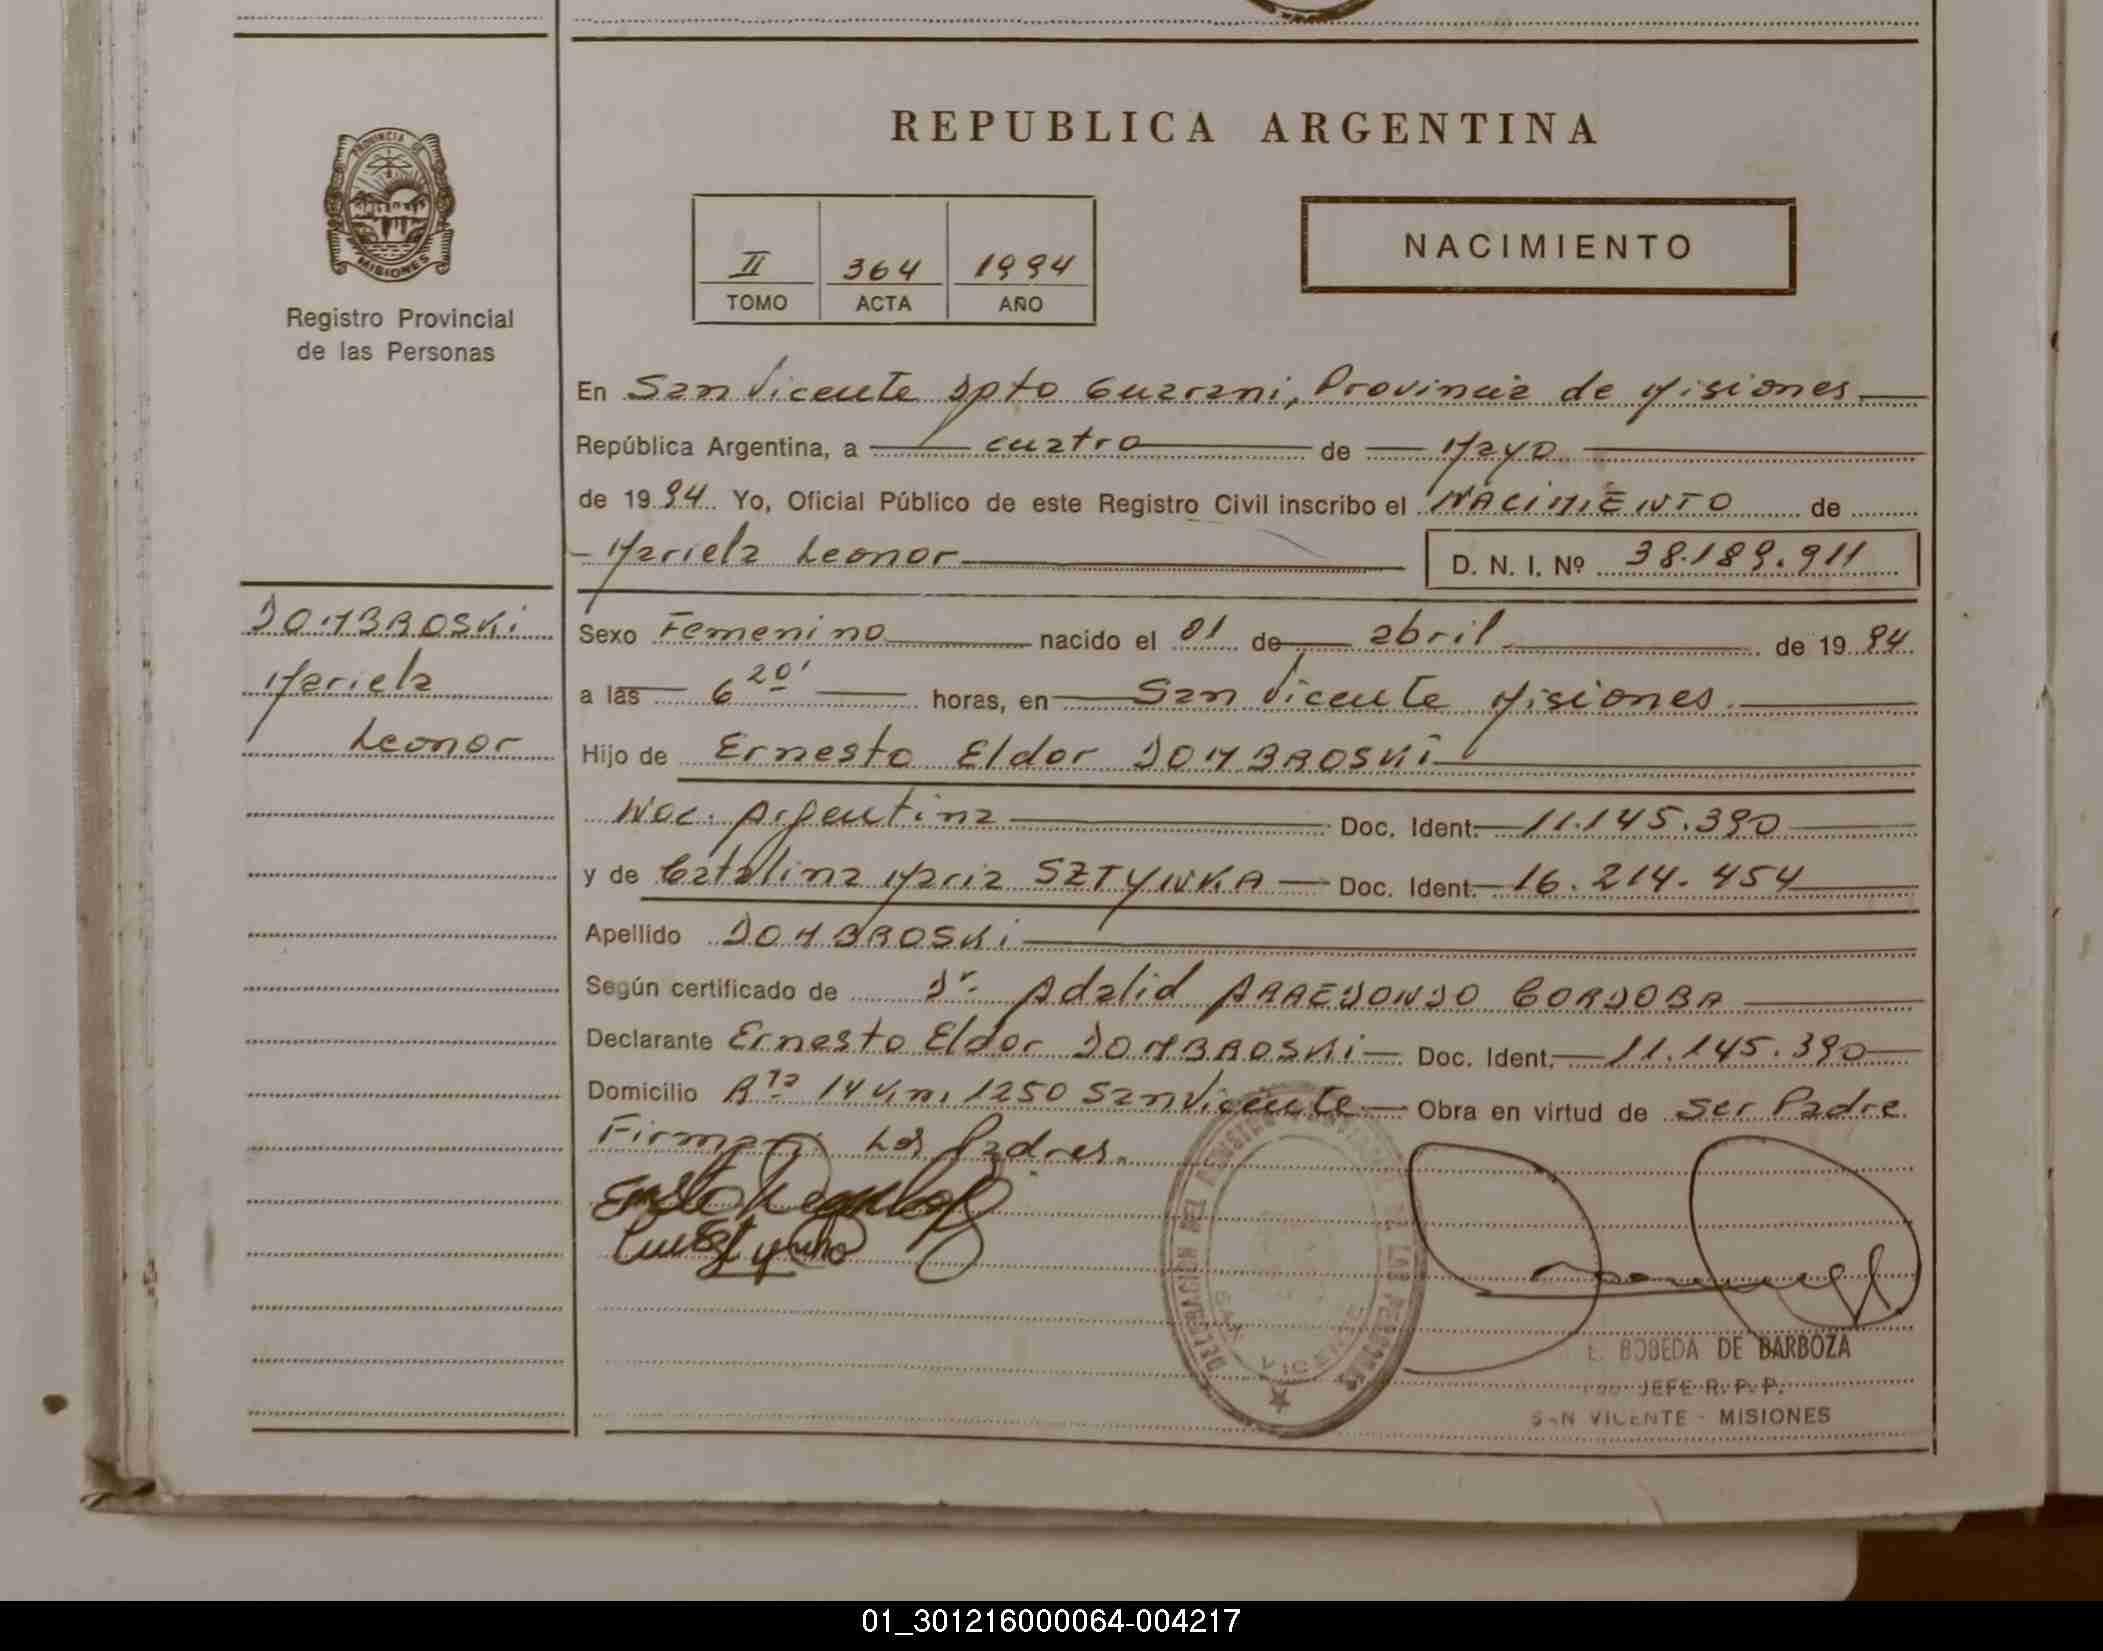 REPUBLICA ARGENTINA
PROVINCIA DE
MISIONES
Registro Provincial
de las Personas
II 364 1994
TOMO ACTA AÑO
NACIMIENTO
En San Vicente Dpto Guarani, Provincia de Misiones
República Argentina, a cuatro de Mayo
de 1994 Yo, Oficial Público de este Registro Civil inscribo el NACIMIENTO de
Mariela Leonor D. N. I. Nº 38.189.911
DOMBROSKi
Mariela
Leonor
Sexo Femenino nacido el 01 de abril de 1994
a las 6 20' horas, en San Vicente Misiones
Hijo de Ernesto Eldor DOMBROSKi
Nac. Argentina Doc. Ident. 11.145.390
y de Catalina Maria SZTYNKA Doc. Ident. 16.214.454
Apellido DOMBROSKi
Según certificado de Dr. Adalid ARREDONDO CORDOBA
Declarante Ernesto Eldor DOMBROSKi Doc. Ident. 11.145.390
Domicilio Rta 14 Km. 1250 San Vicente Obra en virtud de ser Padre
Firman: Los Padres.
DELEGACIÓN DEL REGISTRO PROVINCIAL DE LAS PERSONAS
SAN VICENTE
BOBEDA DE BARBOZA
JEFE R. P. P.
SAN VICENTE - MISIONES
01_301216000064-004217